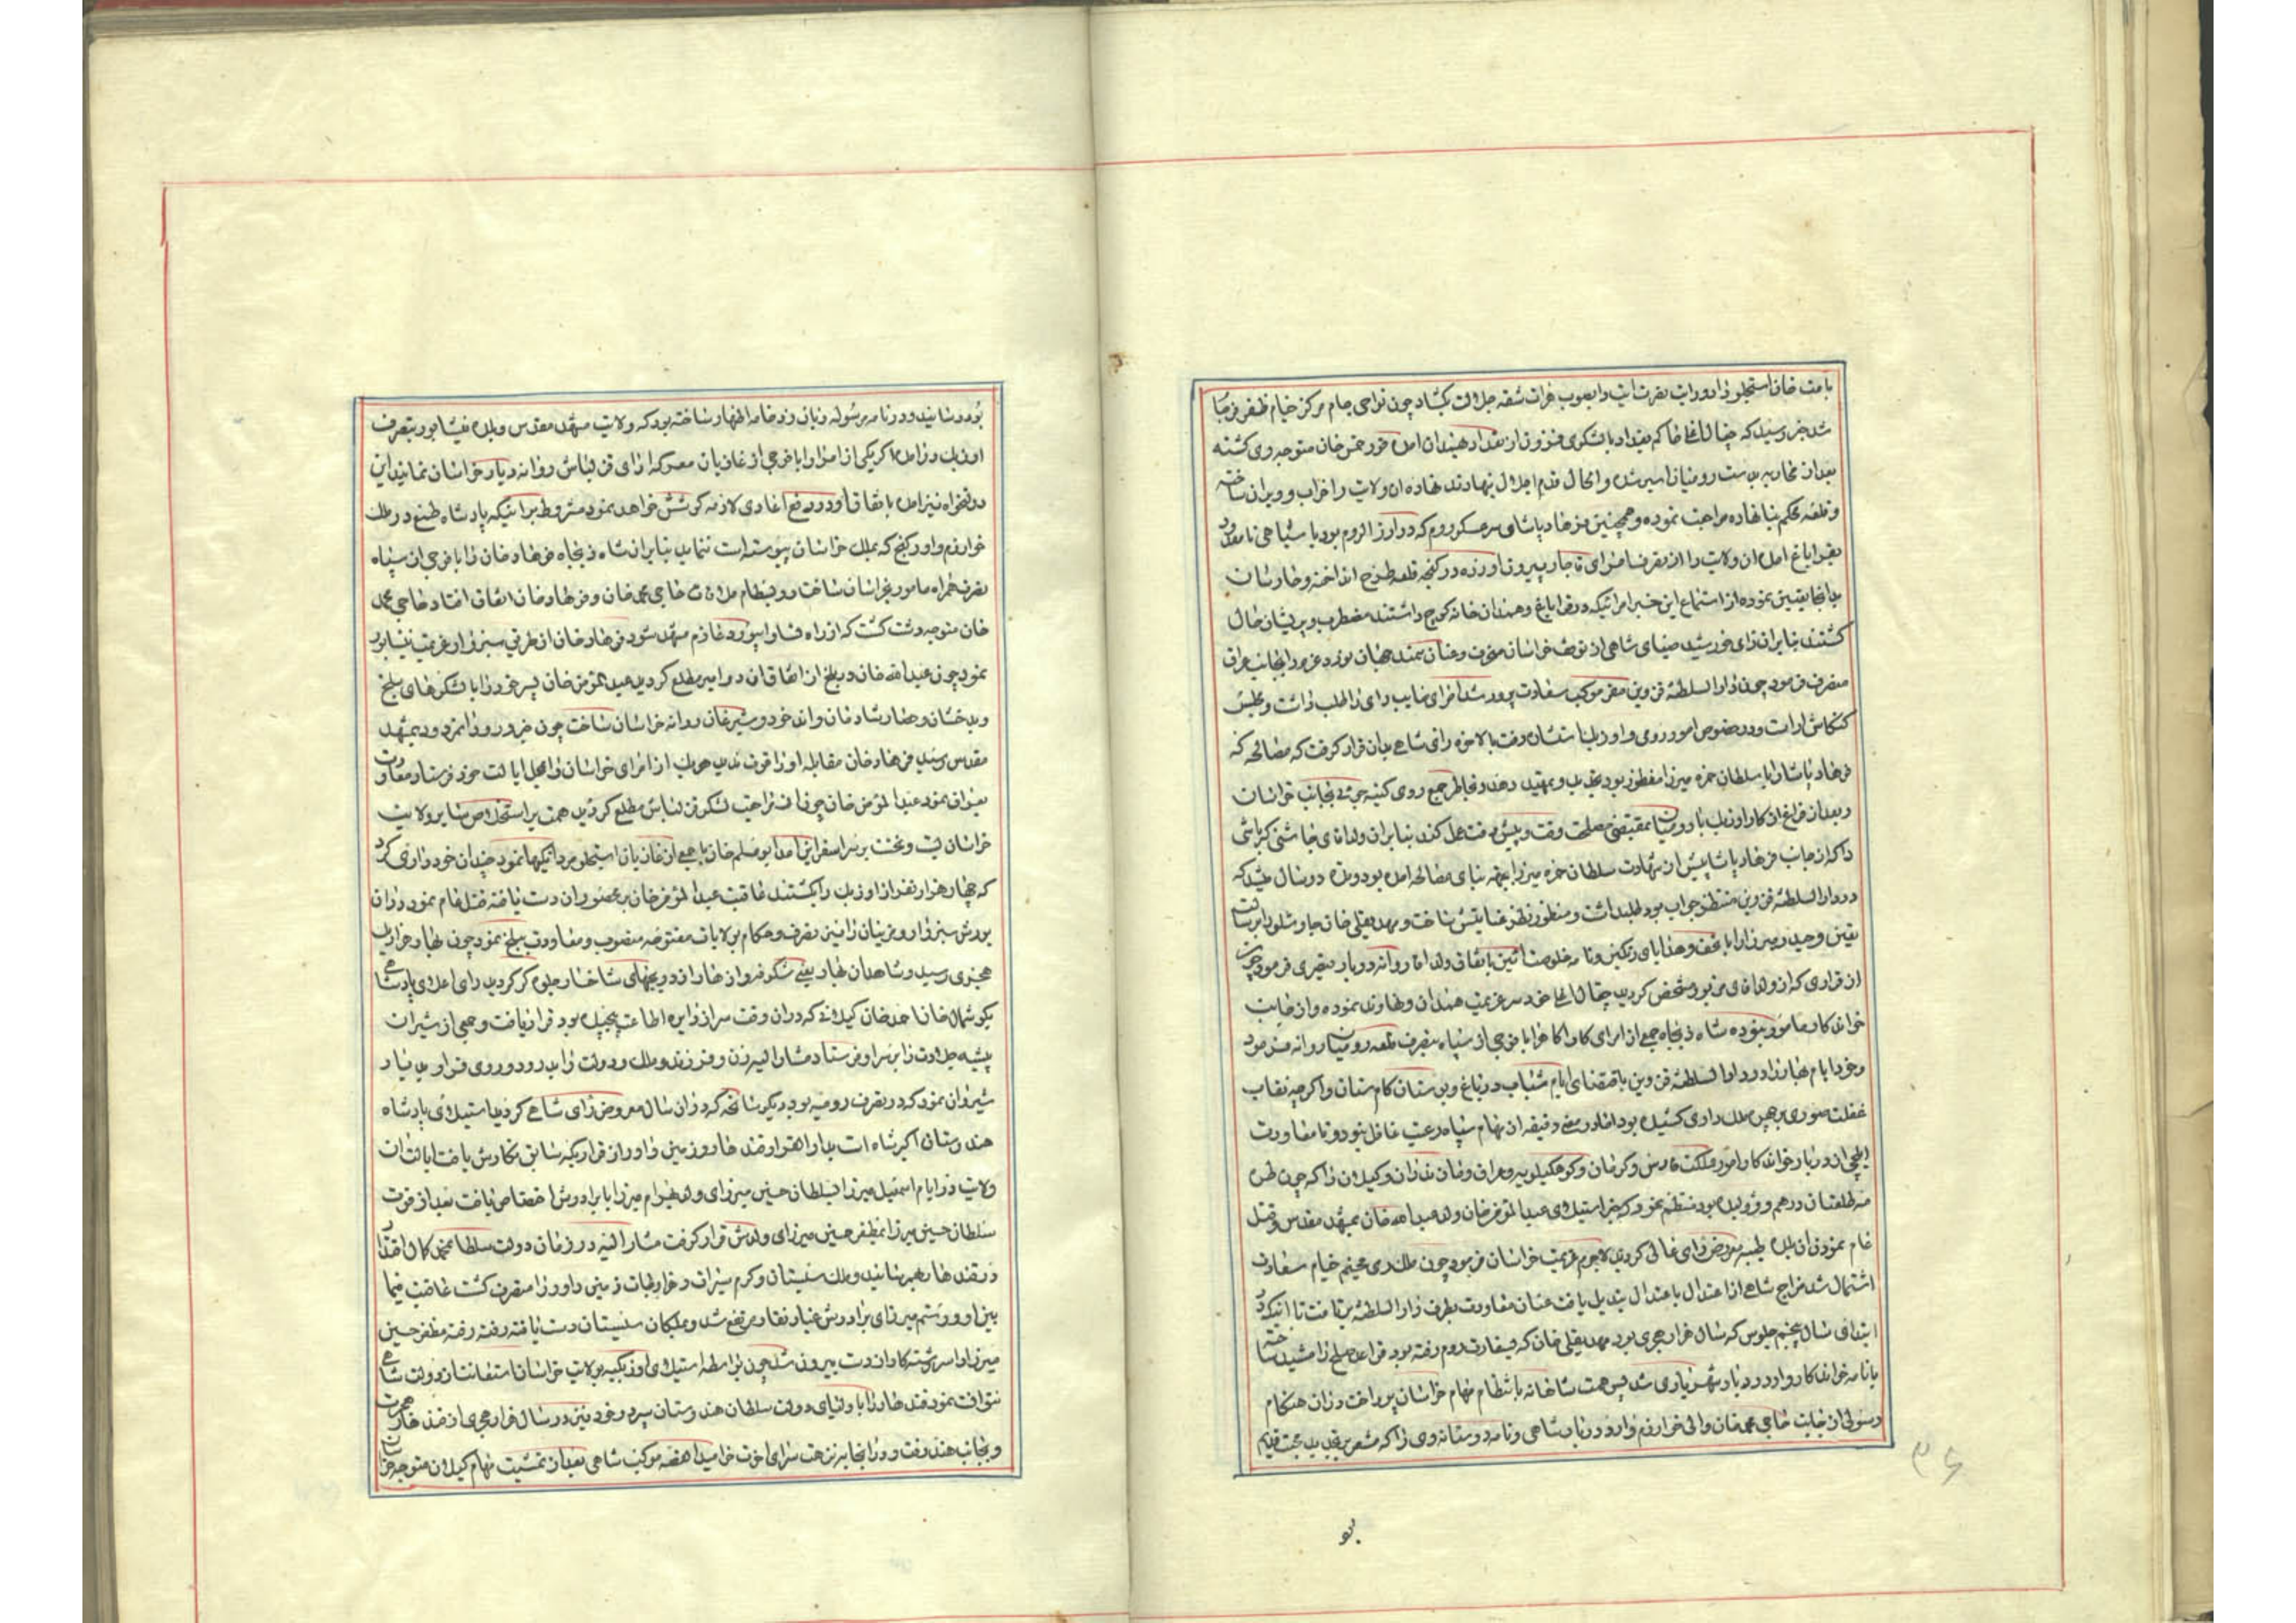 شد خبر رسید که چغال اغلی حاکم بغداد با لشکری فزون از بغداد همدان امده قورخمس خان متوجه وی کشته
بعد از محاربه بدست رومیان اسیر شد و الحال قدم اجلال بنهاوند نهاده ان ولایت را خراب و ویران ساخته
و قلعه محکم بنا نهاده مراجعت نموده و همچنین فرهاد پاشای سرعسکر روم که در ارز الروم بود با سپاهی نامعدود
بقراباغ امده ان ولایت را از تصرف امرای قاجار بیرون اورده در کنجه قلعه طرح انداخته و حصارشان
بدانجا تعیین نموده از استماع این خبر امرائیکه در قراباغ و همدان خانه کوچ داشتند مضطرب و پریشان حال
کشتند بنابران رای خورشید ضیای شاهی از توقف خراسان منحرف و عنان سمند جهان نورد عزم را بجانب عراق
منصرف فرمود چون دار السلطنه قزوین مقر موکب سعادت پرور شد امرای صایب رای را طلب داشت و مجلس
کنکاش اراست و در خصوص امور رومی و اوزبک با ایشان رفت بالاخره رای شاهی بدان قرار کرفت که مصالحه که
فرهاد پاشا را با سلطان حمزه میرزا منظور بود تجدید و تمهید دهد و بخاطر جمع روی کینه جوئی بجانب خراسان
و بعد از فراغ ان کار اوزبک با رومیان بمقتضی مصلحت وقت و پیش رفت عمل کند بنابران ولی اقای چاشنی کیرباشی
را که از جانب فرهاد پاشا پیش از شهادت سلطان حمزه میرزا بجهة بنای مصالحه امده بود و مدة دو سال میشد که
در دار السلطنه قزوین منتظر جواب بود طلبداشت و منظور نظر عنایتش ساخت و مهدیقلی خان چاوشلو را برسالت
تعیین و حیدر میرزا را با تحف و هدایای رنکین و نامه خلوصت ائین باتفاق ولی اقا روانه دربار قیصری فرمود چون
از قراری که از ولی اقای مزبور مشخص کردید چغال اغلی خود سر عزیمت همدان و نهاوند نموده و از جانب
خواندکار مامور نبوده شاه ذیجاه جمعی از امرای کار اکاه را با فوجی از سپاه بتصرف قلعه رومیان روانه فرمود
و خود ایام بهار را در دار السلطنه قزوین باقتضای ایام شباب در باغ و بوستان کام ستان و اکرچه نقاب
غفلت صوری بر چهره ملک داری کشیده بود اما در معنی دقیقه از مهام سپاه و رعیت غافل نبود و تا معاودت
ایلچی از دربار خواندکار امور مملکت فارس و کرمان و کوهکیلویه و عراق و مازندران و کیلان را که چون طره
مه طلعتان درهم و ژولیده بود منتظم نمود که خبر استیلای عبد المؤمن خان ولد عبد الله خان بمشهد مقدس و قتل
عام نمودن ان بلده طیبه معروض رای عالی کردید لاجرم عزیمت خراسان فرمود چون ملک ری مخیم خیام سعادت
اشتمال شد مزاج شاهی از اعتدال باعتدال تبدیل یافت عنان معاودت بطرف دار السلطنه برتافت تا انیکه در
ابتدای سال پنجم جلوس که سال هزار هجری بود مهدیقلی خان که بسفارت روم رفته بود قواعد صلح را مشید ساخته
با نامه خواندکار وارد دربار شهریاری شد پس همت شاهانه بانتظام مهام خراسان پرداخت در ان هنکام
رسولی از جانب حاجی محمد خان والی خوارزم وارد دربار شاهی و نامه دوستانه وی را که مشعر بر تجدید محبت قدیم
بو
۴۶
بود رسانید و در نامه مرسوله و زبان خامه اظهار ساخته بود که ولایت مشهد مقدس و بلده نیشابور بتصرف
اوزبک در امده اکر یکی از امرا را با فوجی از غازیان معرکه ارای قزلباش روانه دیار خراسان نمایند این
دولتخواه نیز امده باتفاق او در دفع اعادی لازمه کوشش خواهد نمود مشروط بر انیکه پادشاه طمع در ملک
خوارزم و اورکنج که بملک خراسان پیوسته است ننماید بنابران شاه ذیجاه فرهاد خان را با فوجی از سپاه
نصرت همراه مامور خراسان ساخت و در بسطام ملاقات حاجی محمد خان و فرهاد خان اتفاق افتاد حاجی محمد
خان متوجه دشت کشت که از راه نسا و ابیورد عازم مشهد شود فرهاد خان از طرفی سبزوار عزیمت نیشابور
نمود چون عبد الله خان در بلخ از اتفاق ان دو امیر مطلع کردید عبد المؤمن خان پسر خود را با لشکرهای بلخ
و بدخشان و حصار شادمان و اندخود و شبرغان روانه خراسان ساخت چون خبر ورود نامزد و بمشهد
مقدس رسید فرهاد خان مقابله او را قوت ندید هریک از امرای خراسان را بمحل ایالت خود فرستاد معاودت
بعراق نمود عبد المؤمن خان چون از مراجعت لشکر قزلباش مطلع کردید همت بر استخلاص سایر ولایت
خراسان بست و نخست بر سر اسفراین امد ابو مسلم خان با جمعی از غازیان استجلو مردانکیها نمود چندان خودداری کرد
که چهار هزار نفر از اوزبک را بکشتند عاقبت عبد المؤمن خان بر محصوران دست یافته قتل عام نمود در ان
یورش سبزوار و مزینان را نیز تصرف و حکام بولایات مفتوحه منصوب و معاودت ببلخ نمود چون بهار هزار یک
هجری رسید و شاهدان بهار یعنی شکوفه و ازهار از دریچهای شاخسار جلوه کر کردید رای اعلای پادشاهی
بکوشمال خان احمد خان کیلانی که در ان وقت سر از دایره اطاعت پیچیده بود قرار یافت و جمعی از شیران
بیشه جلادت را بر سر او فرستاد مشار الیه زن و فرزند و ملک و دولت را بدرود و روی فرار بدیار
شیروان نمود که در تصرف رومیه بود دیکر سانحه که در ان سال معروض رای شاهی کردید استیلای پادشاه
هندوستان اکبر شاه است بدار القرار قندهار و زمین داور از قراریکه سابق نکارش یافت ایالت ان
ولایت در ایام اسمعیل میرزا بسلطان حسین میرزای ولد بهرام میرزا برادرش اختصاص یافت بعد از فوت
سلطان حسین میرزا بمظفر حسین میرزای ولدش قرار کرفت مشار الیه در زمان دولت سلطان محمد کمال اقتدار
در قندهار بهم رسانید و ملک سیستان و کرم سیرات و خراجات زمین داور را متصرف کشت عاقبت فیما
بین او و رستم میرزای برادرش غبار نقار مرتفع شد و ملکان سیستان دست یافته رفته رفته مظفر حسین
میرزا را سر رشته کار از دست بیرون شد چون بواسطه استیلای اوزبکیه بولایت خراسان استعانتشان از دولت شاهی
نتوانست نمود قندهار را باولیای دولت سلطان هندوستان سپرد و خود نیز در سال هزار هجری از قندهار هجرت
و بجانب هند رفت و در انجا بنزهت سرای اخرت خرامید القصه موکب شاهی بعد از تمشیت مهام کیلان متوجه خراسان